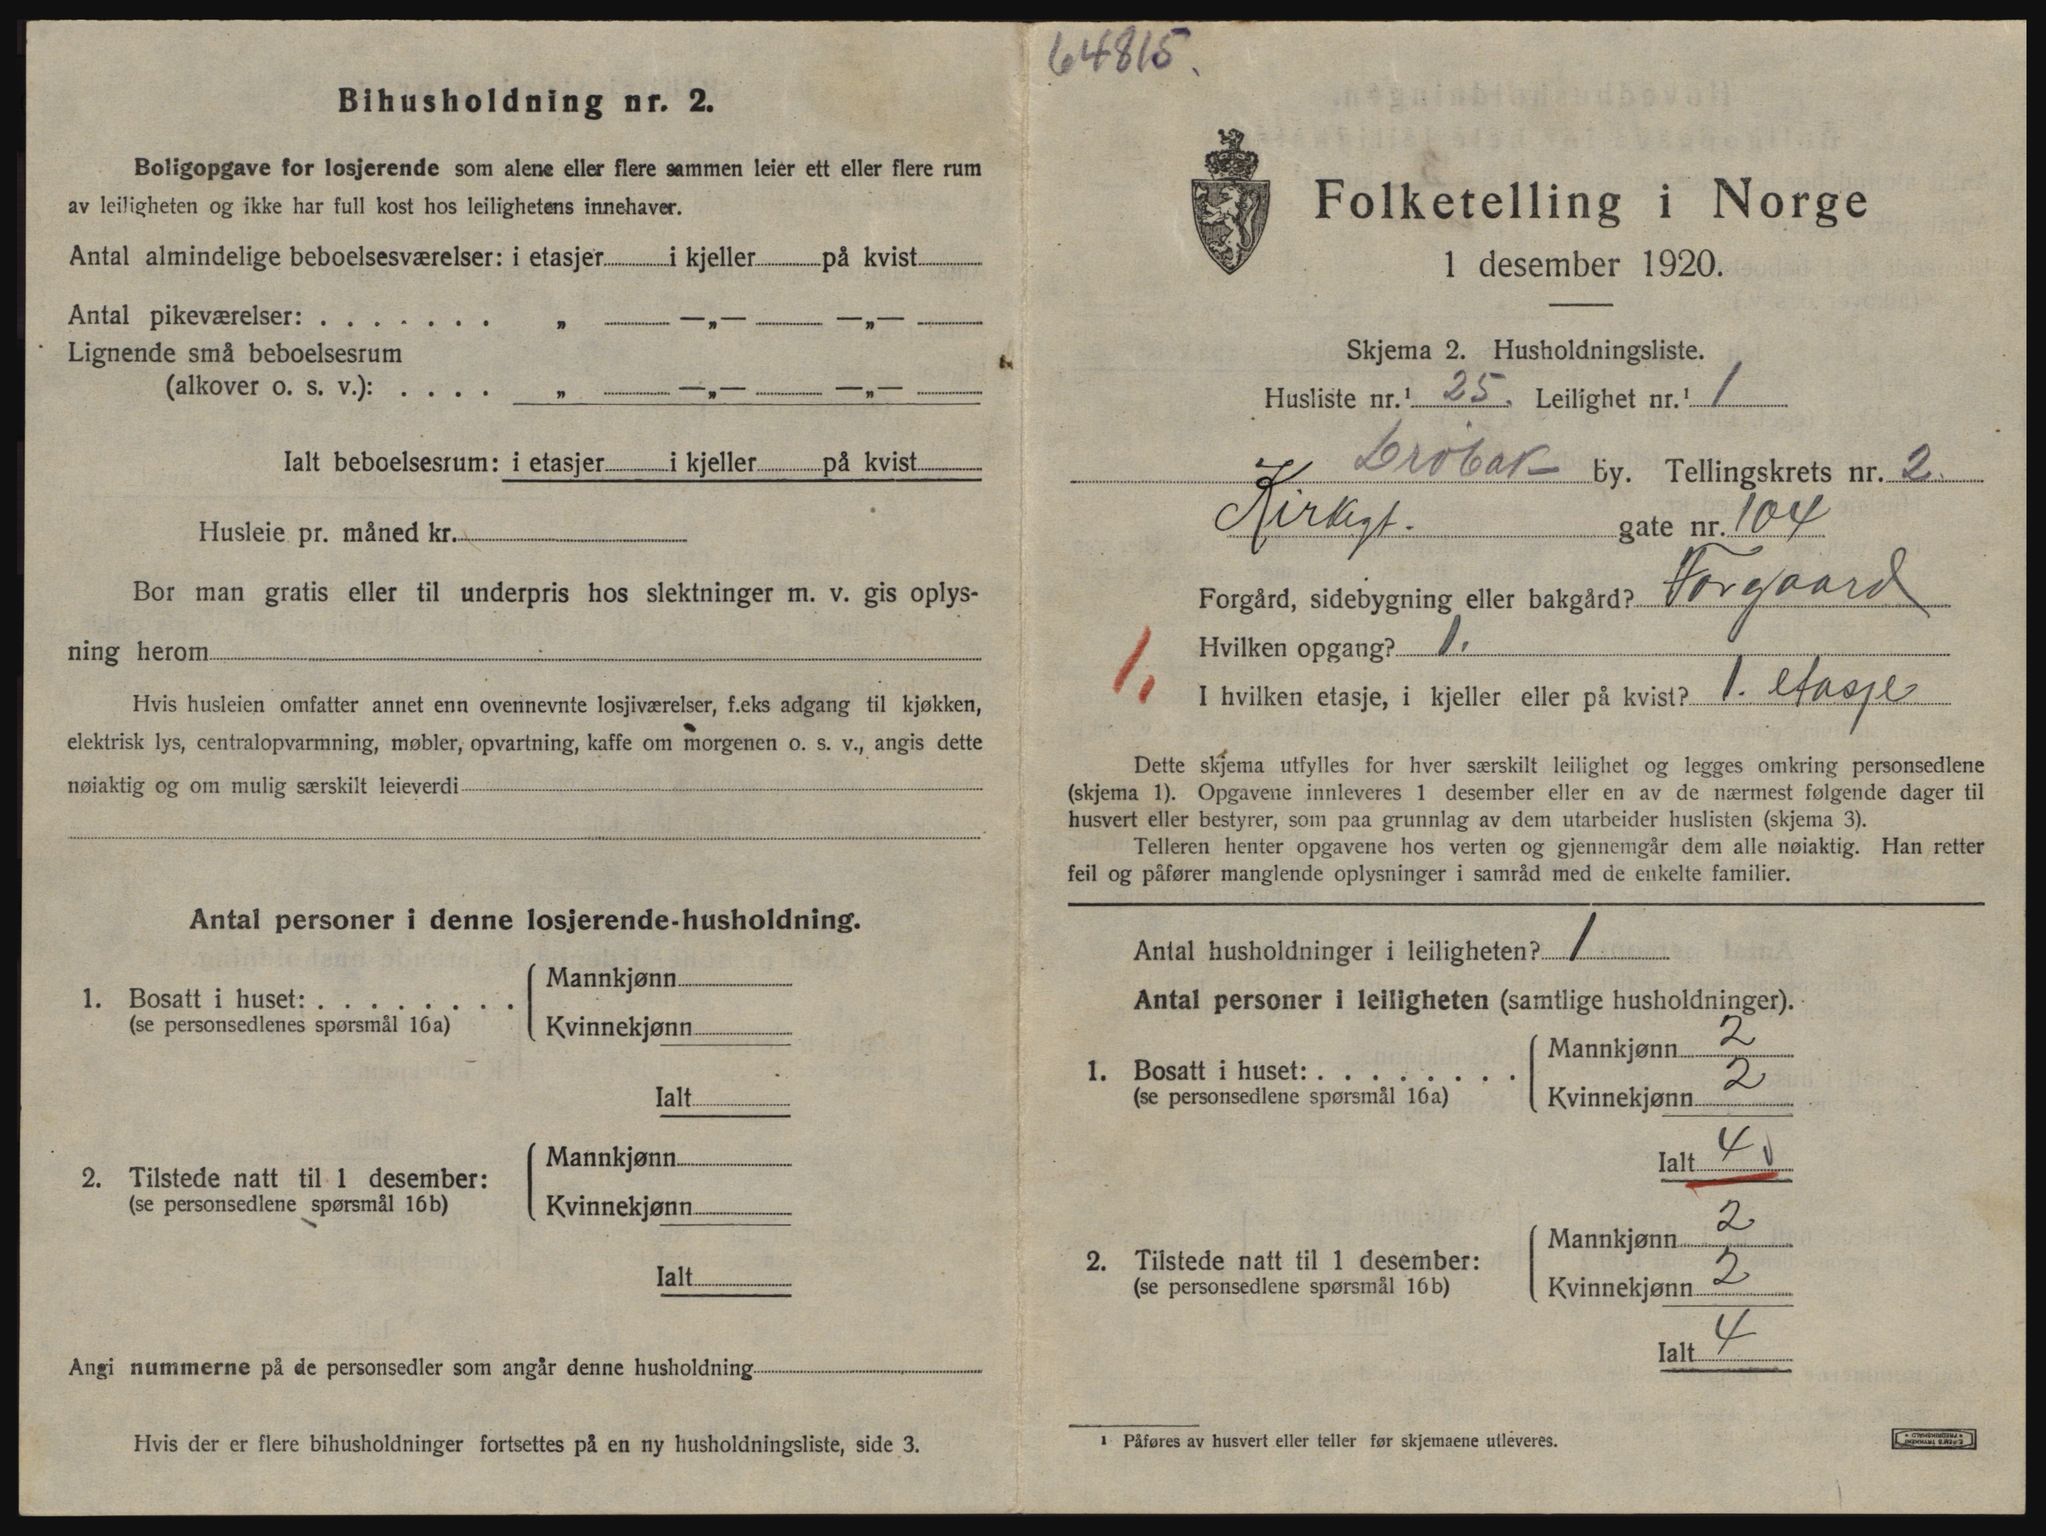 Bihusholdning nr. 2.
Boligopgave for losjerende som alene eller flere sammen leier ett eller flere rum
av leiligheten og ikke har full kost hos leilighetens innehaver.
Antal almindelige beboelsesværelser: i etasjer i kjeller på kvist
Antal pikeværelser: . . . . . . . „ —„— —„—
Lignende små beboelsesrum
(alkover o. s. v.): . . . . „ —„— —„—
Ialt beboelsesrum: i etasjer i kjeller på kvist
Husleie pr. måned kr.
Bor man gratis eller til underpris hos slektninger m. v. gis oplys-
ning herom
Hvis husleien omfatter annet enn ovennevnte losjiværelser, f.eks adgang til kjøkken,
elektrisk lys, centralopvarmning, møbler, opvartning, kaffe om morgenen o. s. v., angis dette
nøiaktig og om mulig særskilt leieverdi
Antal personer i denne losjerende-husholdning.
1. Bosatt i huset: . . . . . . . . Mannkjønn
(se personsedlenes spørsmål 16a) Kvinnekjønn
Ialt
2. Tilstede natt til 1 desember: Mannkjønn
(se personsedlene spørsmål 16b) Kvinnekjønn
Ialt
Angi nummerne på de personsedler som angår denne husholdning
Hvis der er flere bihusholdninger fortsettes på en ny husholdningsliste, side 3.
64815.
Folketelling i Norge
1 desember 1920.
Skjema 2. Husholdningsliste.
Husliste nr.¹ 25. Leilighet nr.¹ 1
Drøbak by. Tellingskrets nr. 2.
Kirkegt. gate nr. 104
Forgård, sidebygning eller bakgård? Forgaard
Hvilken opgang? 1.
1.
I hvilken etasje, i kjeller eller på kvist? 1. etasje
Dette skjema utfylles for hver særskilt leilighet og legges omkring personsedlene
(skjema 1). Opgavene innleveres 1 desember eller en av de nærmest følgende dager til
husvert eller bestyrer, som paa grunnlag av dem utarbeider huslisten (skjema 3).
Telleren henter opgavene hos verten og gjennemgår dem alle nøiaktig. Han retter
feil og påfører manglende oplysninger i samråd med de enkelte familier.
Antal husholdninger i leiligheten? 1
Antal personer i leiligheten (samtlige husholdninger).
1. Bosatt i huset: . . . . . . . . Mannkjønn 2
(se personsedlene spørsmål 16a) Kvinnekjønn 2
Ialt 4
2. Tilstede natt til 1 desember: Mannkjønn 2
(se personsedlene spørsmål 16b) Kvinnekjønn 2
Ialt 4
¹ Påføres av husvert eller teller før skjemaene utleveres.